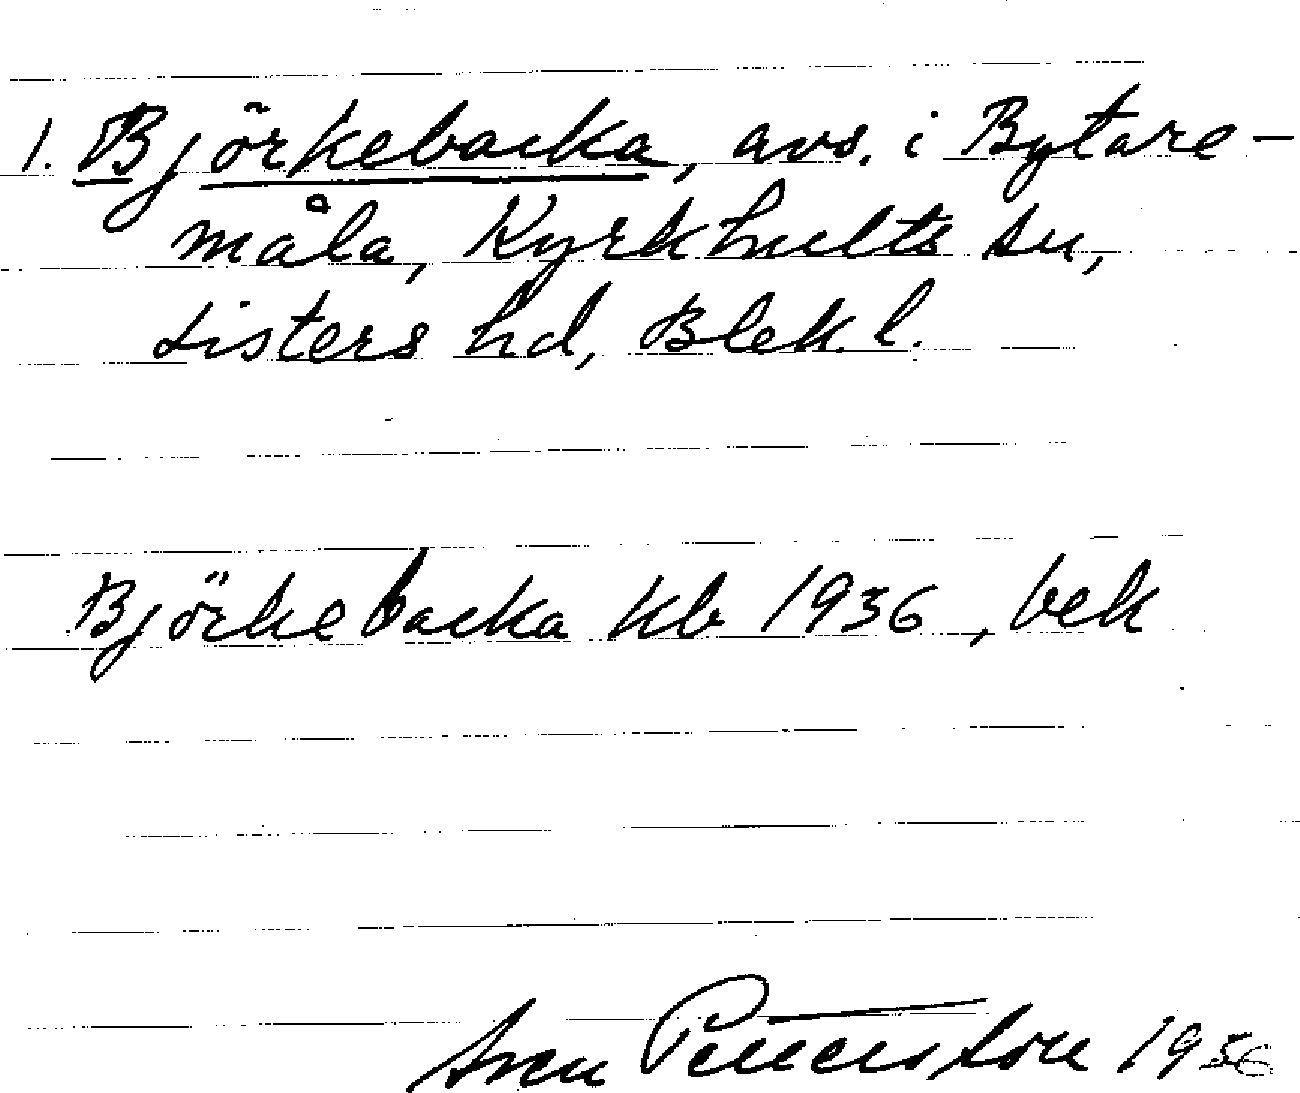 1. Björkebacka, avs. i Bytare-
måla, Kyrkhults sn,
Listers hd, Blek. l.
Björkebacka kb 1936, bek
Sven Petterson 1956